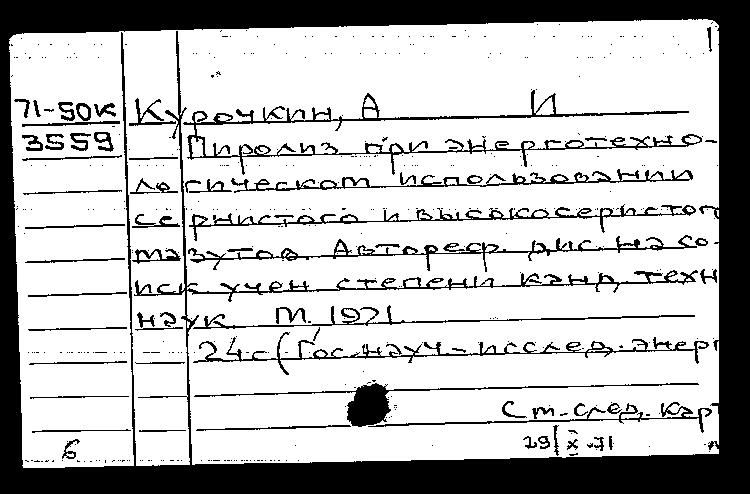 71-50к Курочкин, А И
3559 Пиролиз при энерготехно-
логическом использовании
сернистого и высокосернистого
мазутов. Автореф. дис. на со-
иск учен степени канд. техн
наук. М, 1971.
24с (Гос. науч.-исслед. энерг
См. след. карт
6 29/X-71